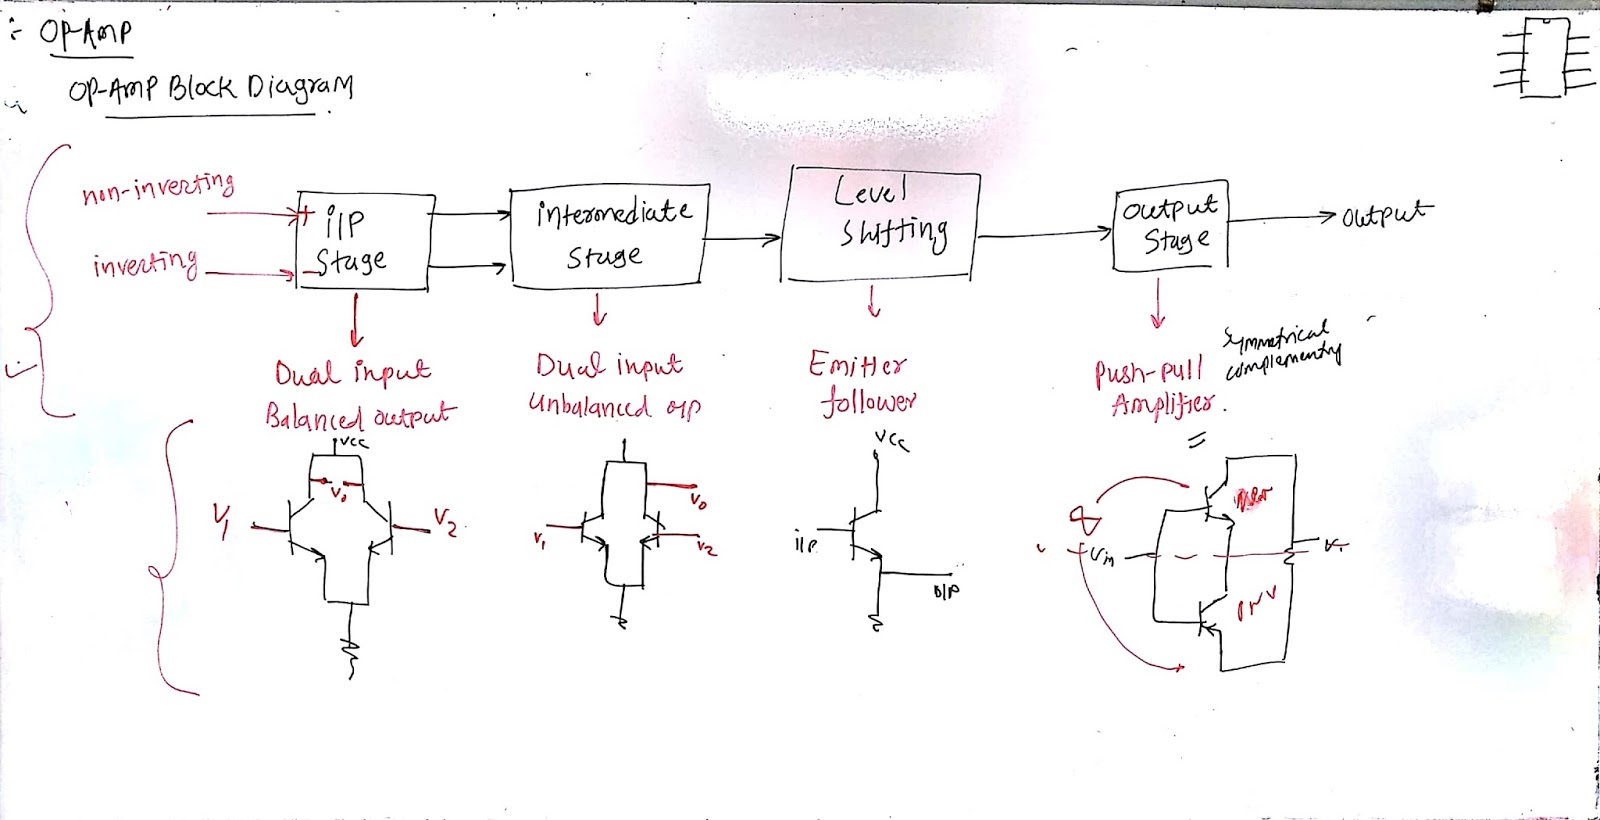 OP-AMP
OP-AMP Block Diagram
non-inverting
inverting
+ i/P
- Stage
intermediate
Stage
Level
Shifting
Output
Stage
Output
Dual input
Balanced output
Dual input
Unbalanced o/p
Emitter
follower
Push-pull
Amplifier.
Symmetrical
complementry
VCC
Vo
V1
V2
Vo
V1
V2
VCC
i/P
O/P
Vin